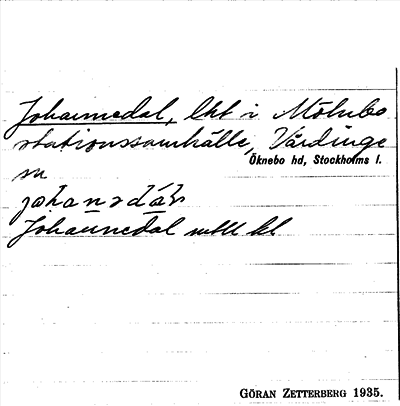 Johannedal, lht i Mölnbo
stationssamhälle, Vårdinge
Öknebo hd, Stockholms l.
sn
Johannedal mtll bl
GÖRAN ZETTERBERG 1935.